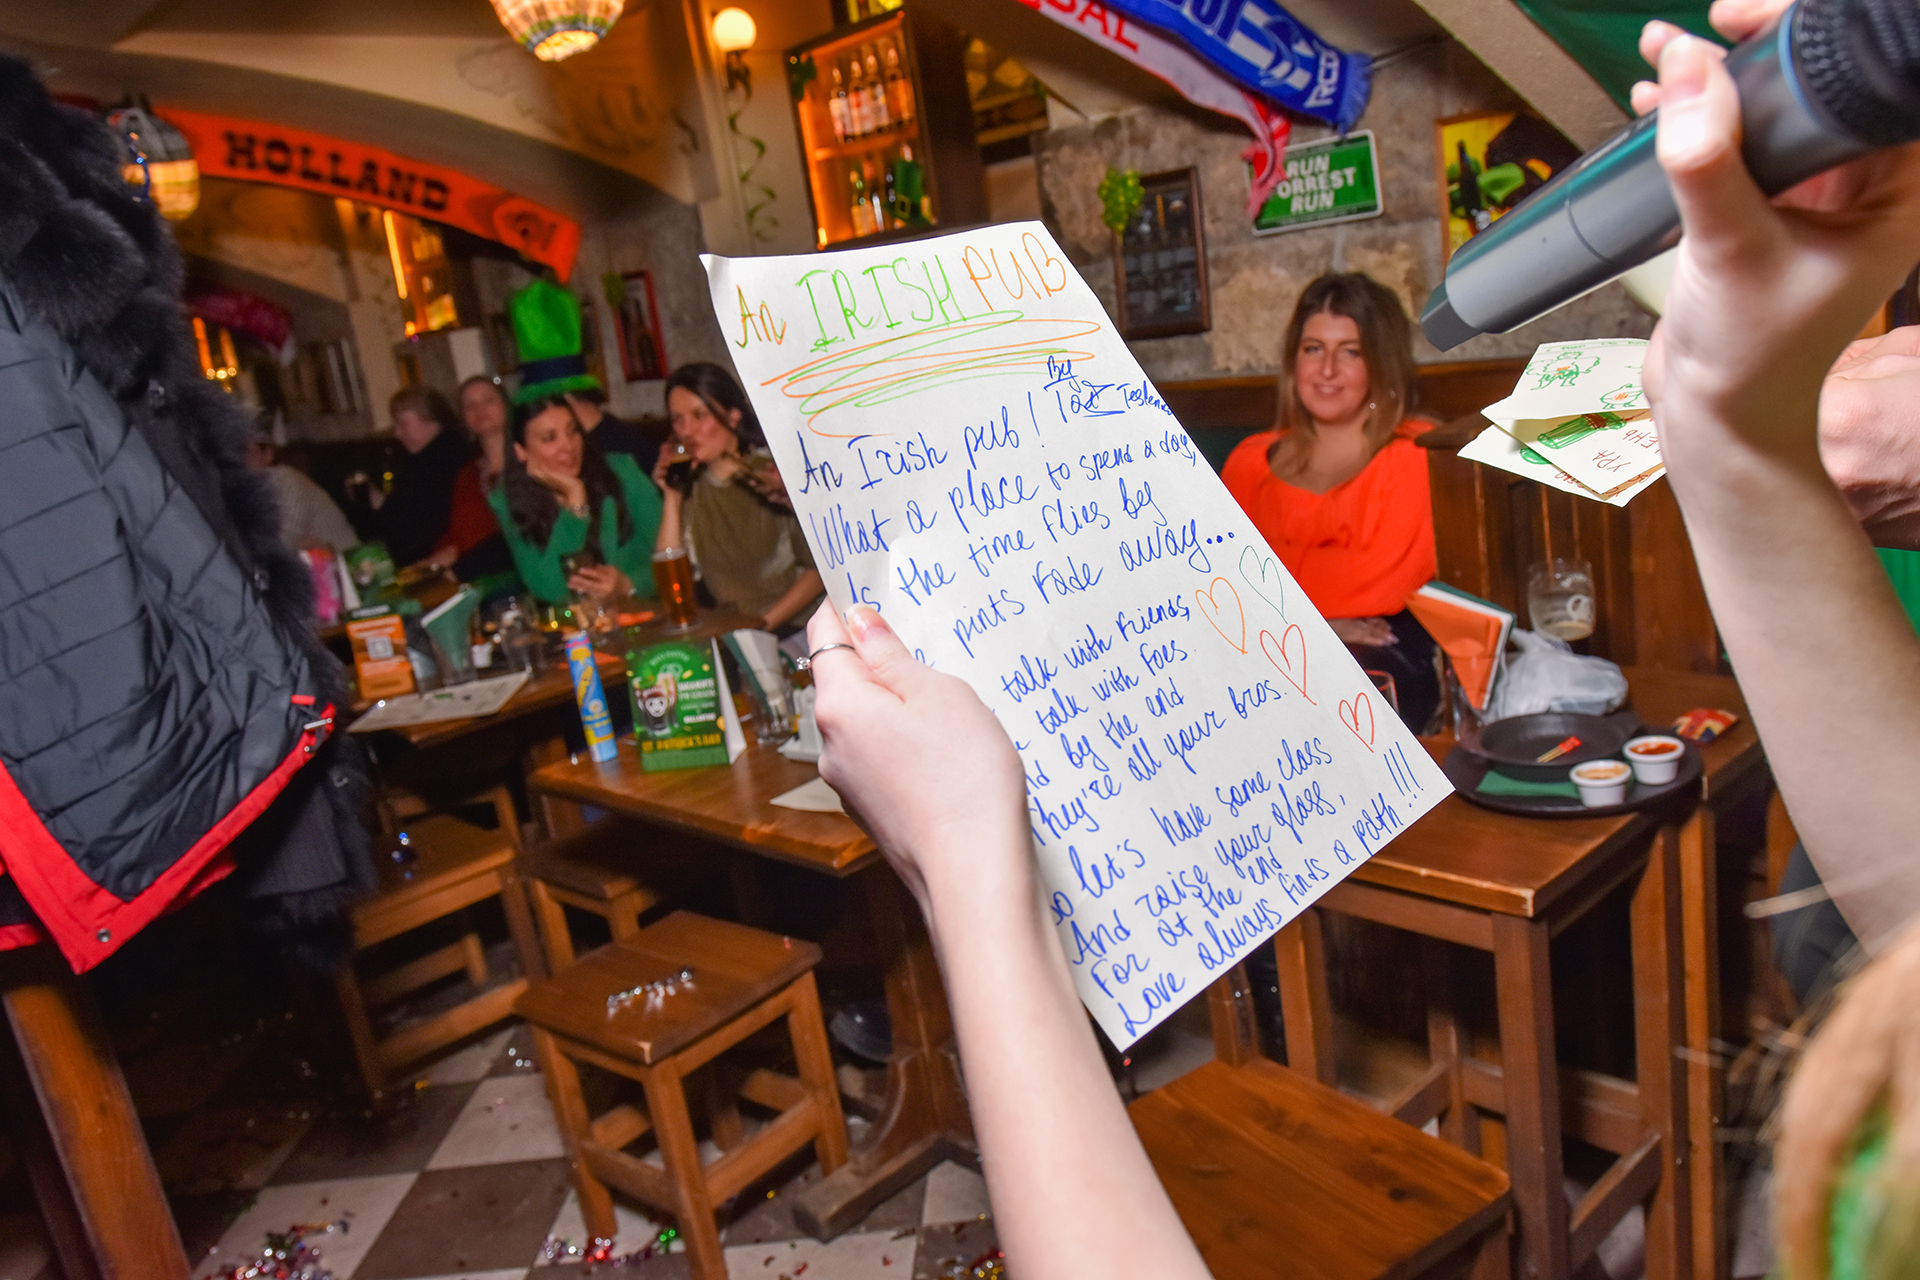 HOLLAND
RUN
FORREST
RUN
An IRISH PUB
By
An Irish pub!
What a place to spend a day,
As the time flies by
pints fade away...
talk with friends,
talk with foes.
by the end
They're all your bros.
So let's have some class
And raise your glass,
For at the end
Love always finds a path!!!
УРА
ST. PATRICK'S DAY